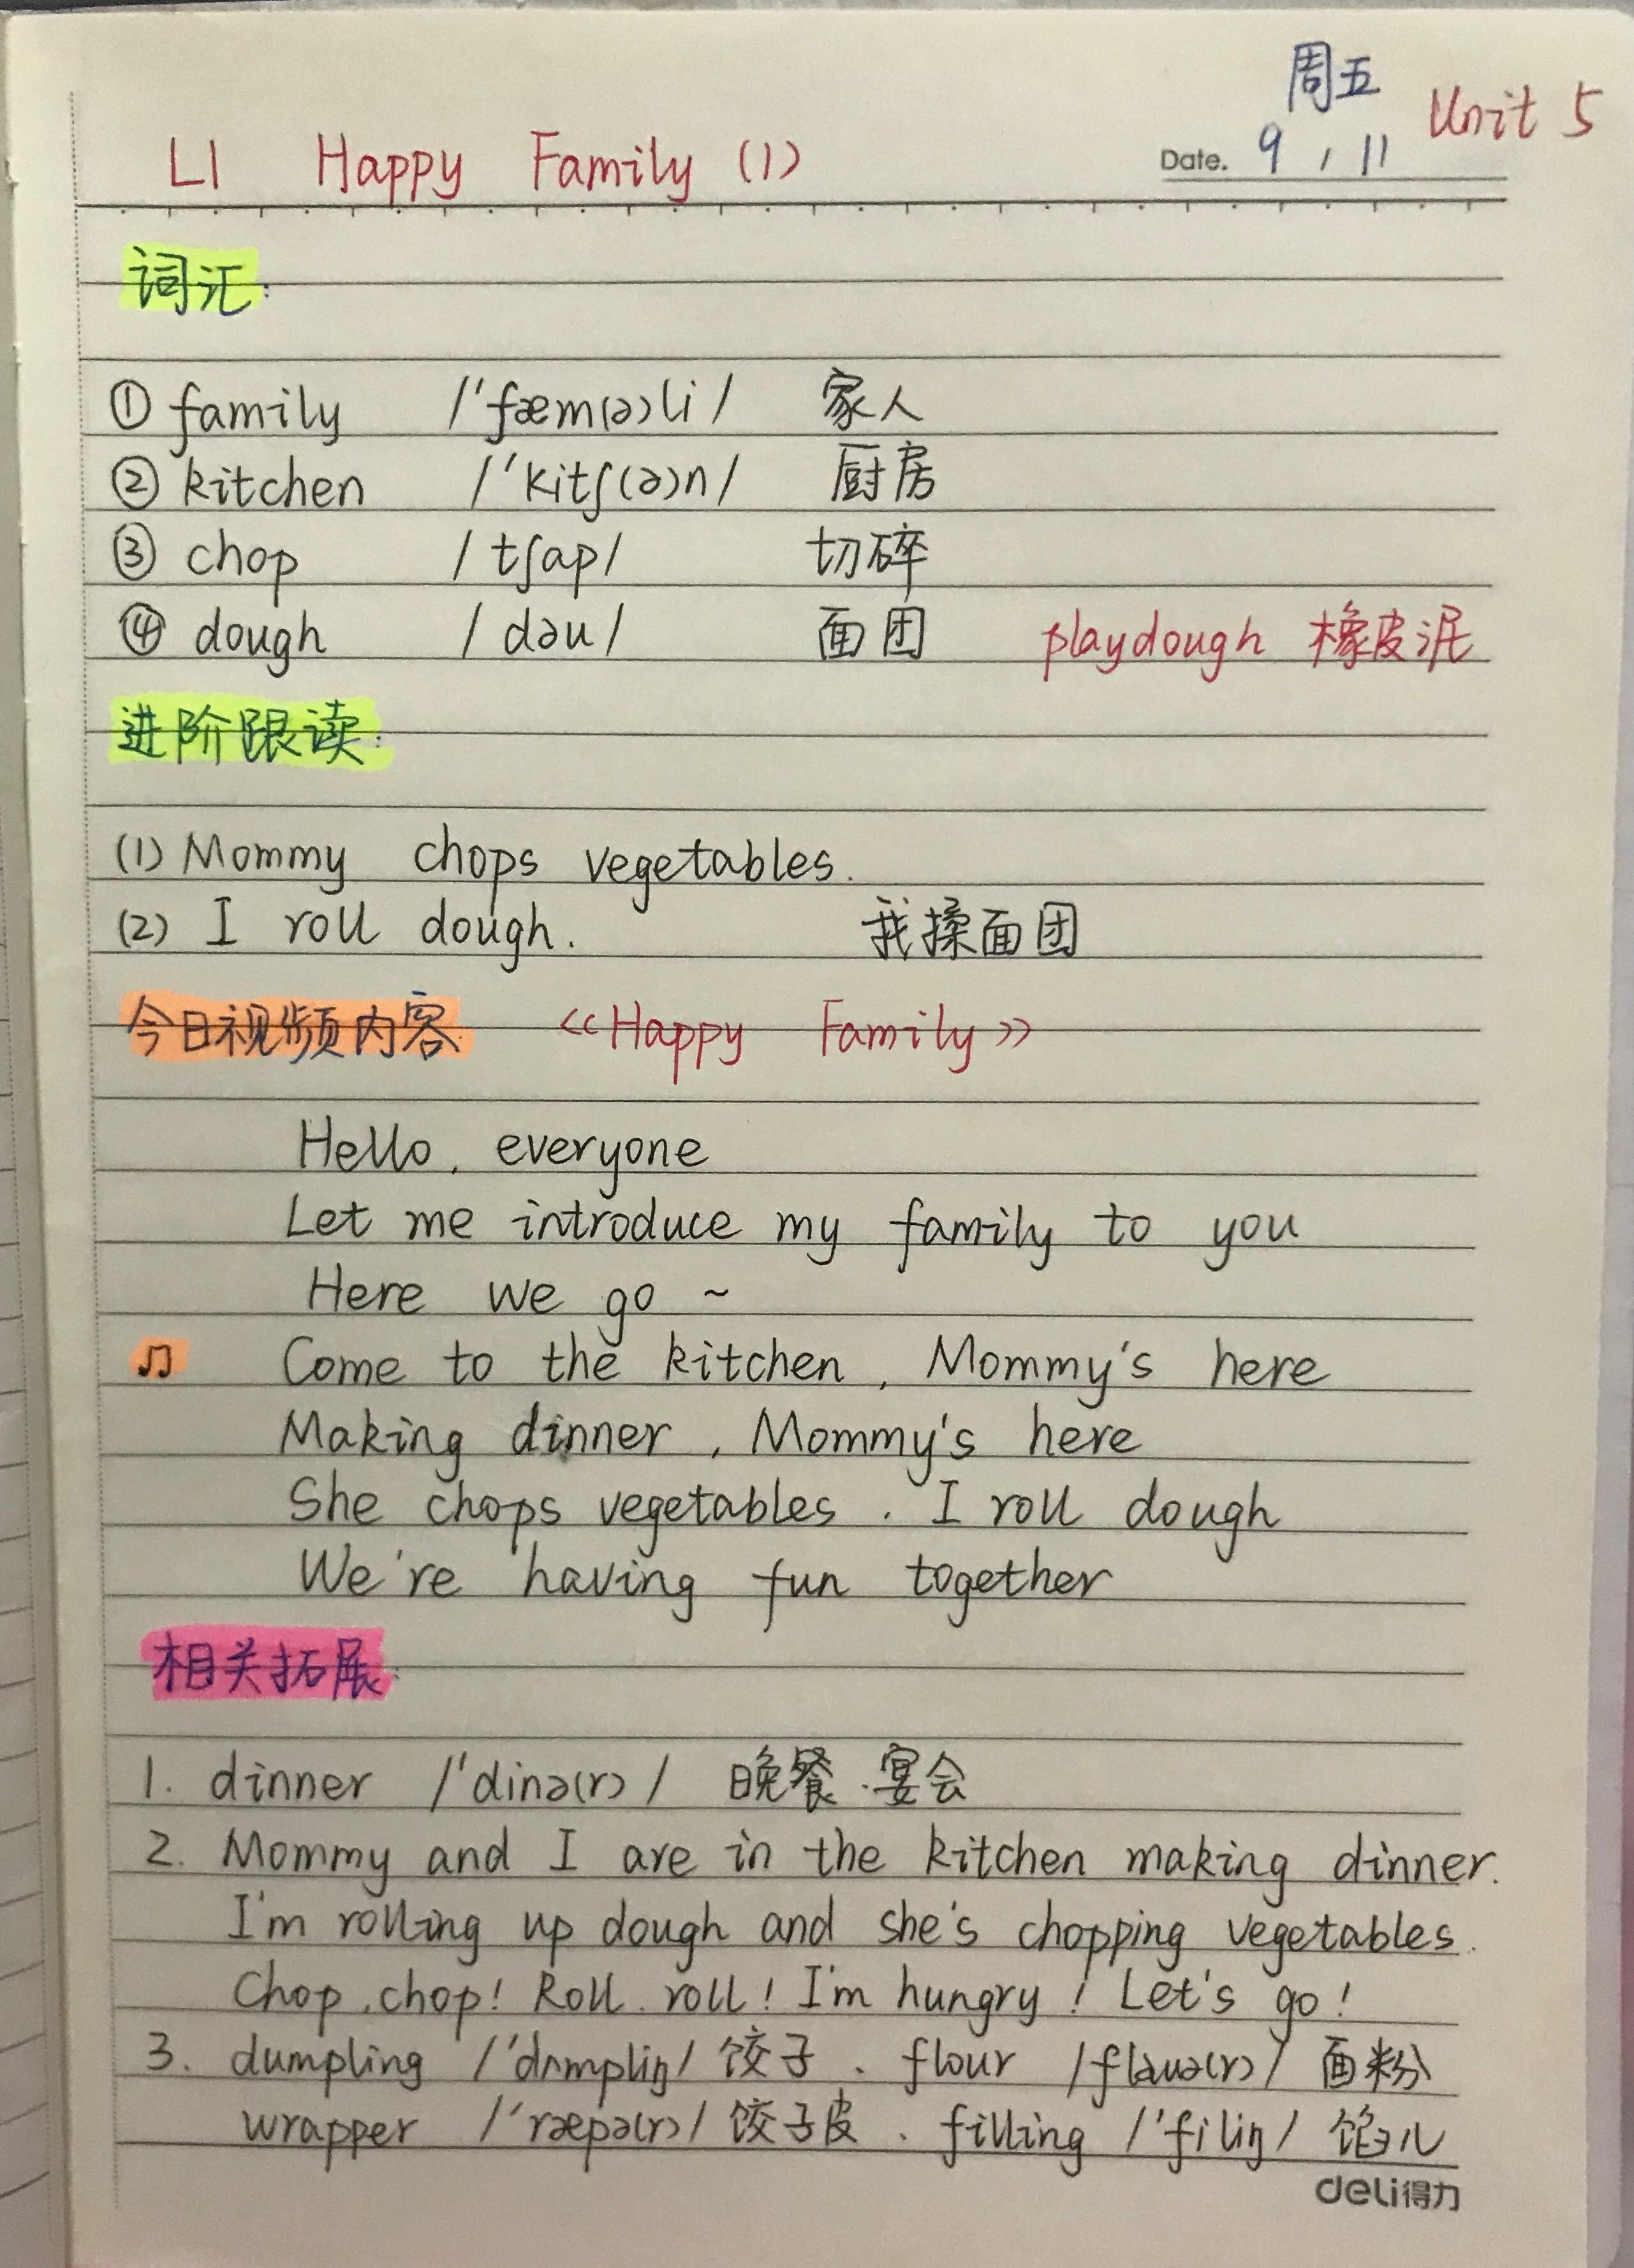 周五
Unit 5
L1 Happy Family (1)
Date. 9 / 11
词汇:
① family /'fæm(ə)li/ 家人
② kitchen /'kitʃ(ə)n/ 厨房
③ chop /tʃap/ 切碎
④ dough /dəu/ 面团 playdough 橡皮泥
进阶跟读:
(1) Mommy chops vegetables.
(2) I roll dough. 我揉面团
今日视频内容: <<Happy Family>>
Hello, everyone
Let me introduce my family to you
Here we go ~
♫ Come to the kitchen, Mommy's here
Making dinner, Mommy's here
She chops vegetables. I roll dough
We're having fun together
相关拓展:
1. dinner /'dinə(r)/ 晚餐.宴会
2. Mommy and I are in the kitchen making dinner.
I'm rolling up dough and she's chopping vegetables.
Chop, chop! Roll. roll! I'm hungry! Let's go!
3. dumpling /'dʌmpliŋ/ 饺子. flour /flauə(r)/ 面粉
wrapper /'ræpə(r)/ 饺子皮. filling /'filiŋ/ 馅儿
deli得力